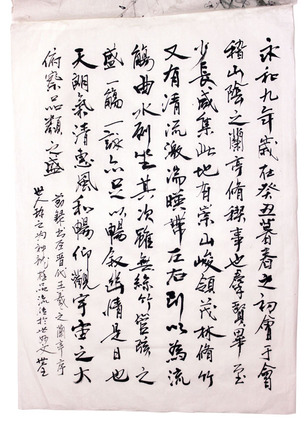 永和九年歲在癸丑暮春之初會于會
稽山陰之蘭亭脩禊事也群賢畢至
少長咸集此地有崇山峻領茂林脩竹
又有清流激湍映帶左右引以為流
觴曲水列坐其次雖無絲竹管弦之
盛一觴一詠亦足以暢叙幽情是日也
天朗氣清惠風和暢仰觀宇宙之大
俯察品類之盛
晉代王羲之蘭亭序
世人稱之為